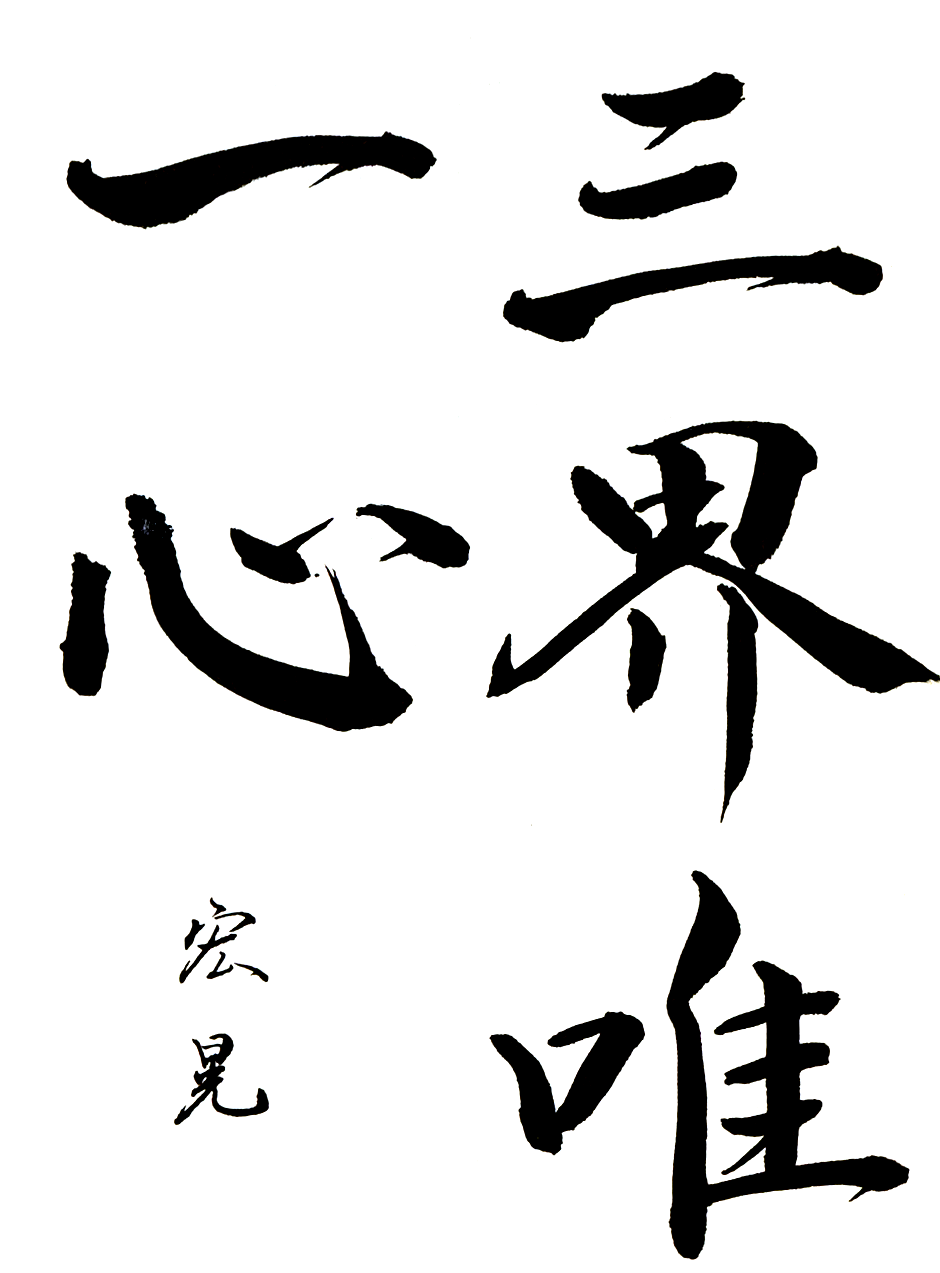 三界唯
一心
宏晃